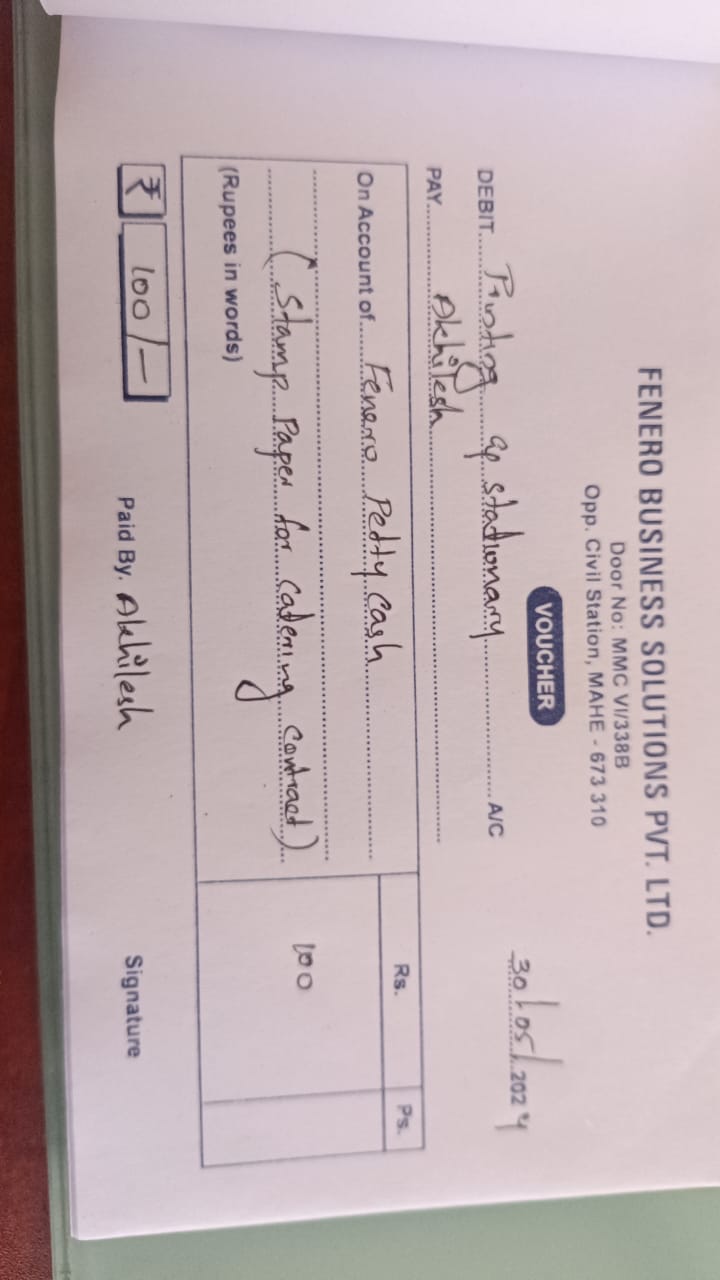 FENERO BUSINESS SOLUTIONS PVT. LTD.
Door No: MMC VI/338B
Opp. Civil Station, MAHE - 673 310
VOUCHER
30/05/2024
DEBIT Printing & stationary A/C
PAY Akhilesh
Rs. Ps.
On Account of Fenero Petty cash
(Stamp Paper for catering contract) 100
(Rupees in words)
₹ 100/- Paid By. Akhilesh Signature